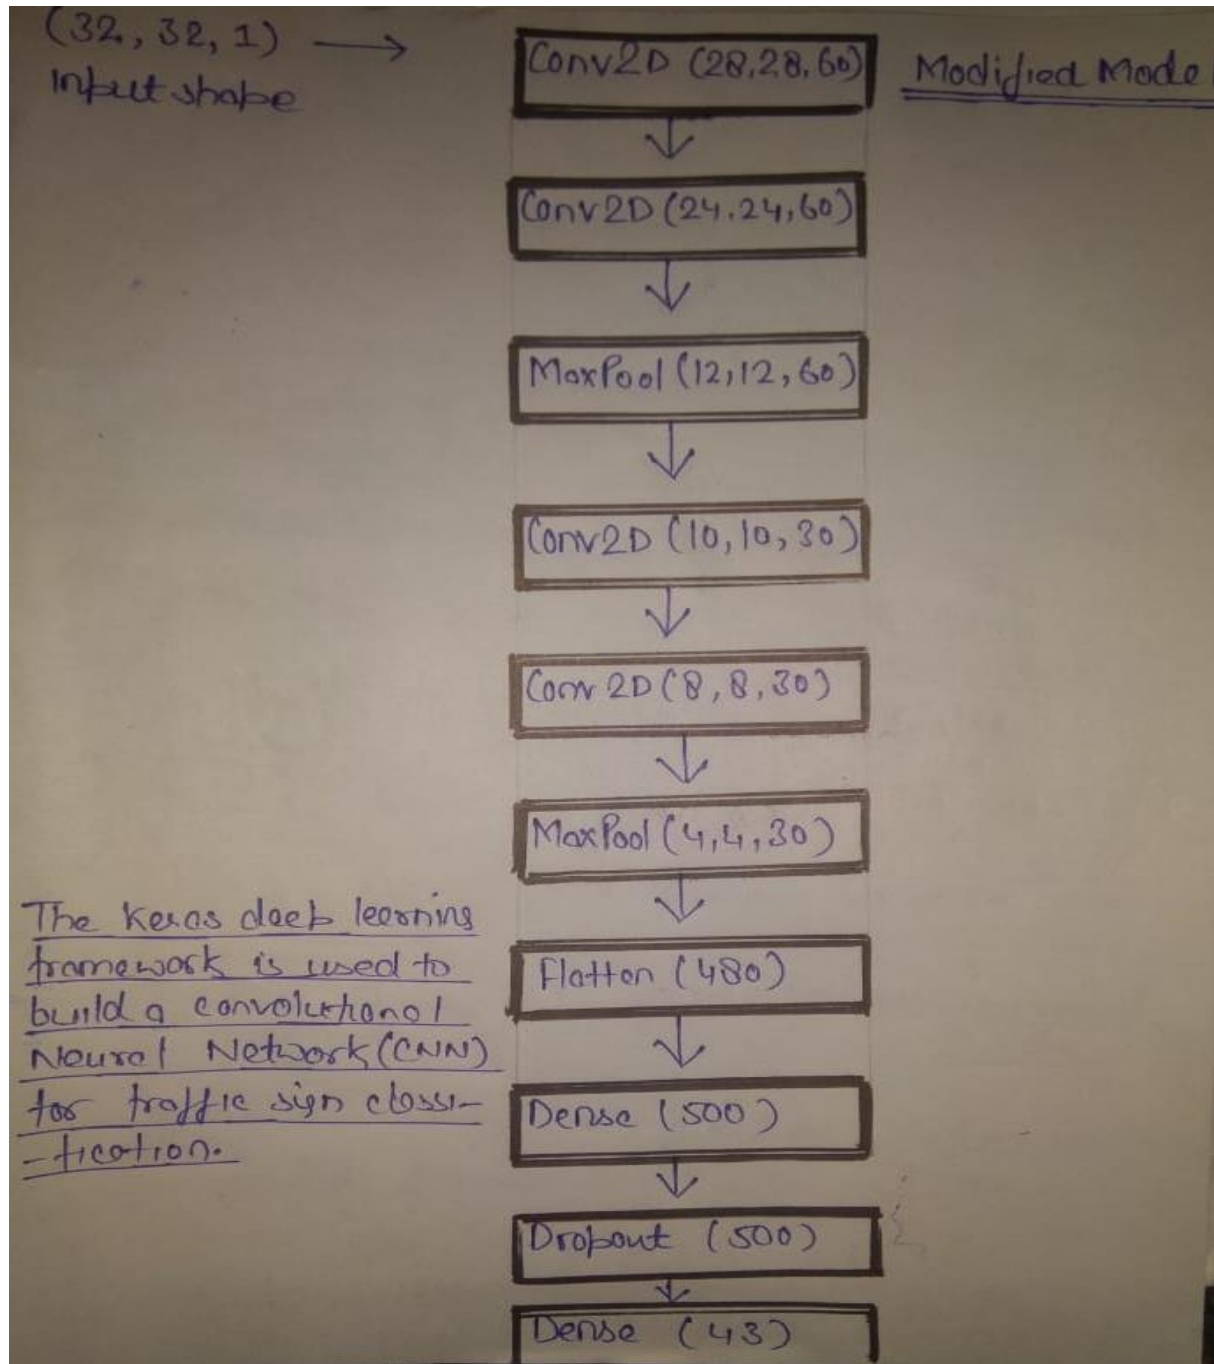 (32, 32, 1) →
Input shape
Conv2D (28,28,60)
Modified Mode
Conv2D (24,24,60)
MaxPool (12,12,60)
Conv2D (10,10,30)
Conv2D (8,8,30)
MaxPool (4,4,30)
Flatten (480)
Dense (500)
Dropout (500)
Dense (43)
The Keras deep learning
framework is used to
build a convolutional
Neural Network (CNN)
for traffic sign classi-
-fication.